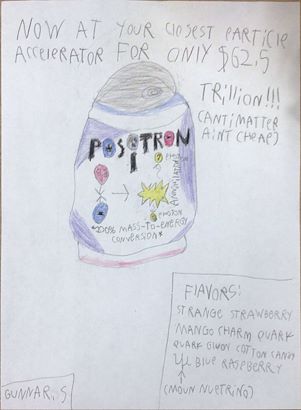 NOW AT YOUR CLOSEST PARTICLE
ACCELERATOR FOR ONLY $62.5
TRILLION!!!
(ANTIMATTER
AINT CHEAP)
POSITRON
1
PHOTON
ANNIHILATION
PHOTON
*200% MASS-TO-ENERGY
CONVERSION*
FLAVORS:
STRANGE STRAWBERRY
MANGO CHARM QUARK
QUARK GLUON COTTON CANDY
BLUE RASPBERRY
(MOUN NUETRINO)
GUNNAR.S